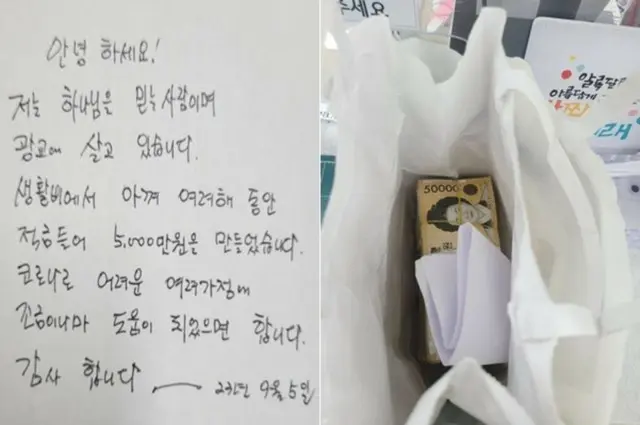 안녕 하세요!
저는 하나님을 믿는 사람이며
광교에 살고 있습니다.
생활비에서 아껴 여러해 동안
적금들어 5,000만원을 만들었습니다.
코로나로 어려운 여러가정에
조금이나마 도움이 되었으면 합니다.
감사 합니다 23년 9월 5일
주세요
50000